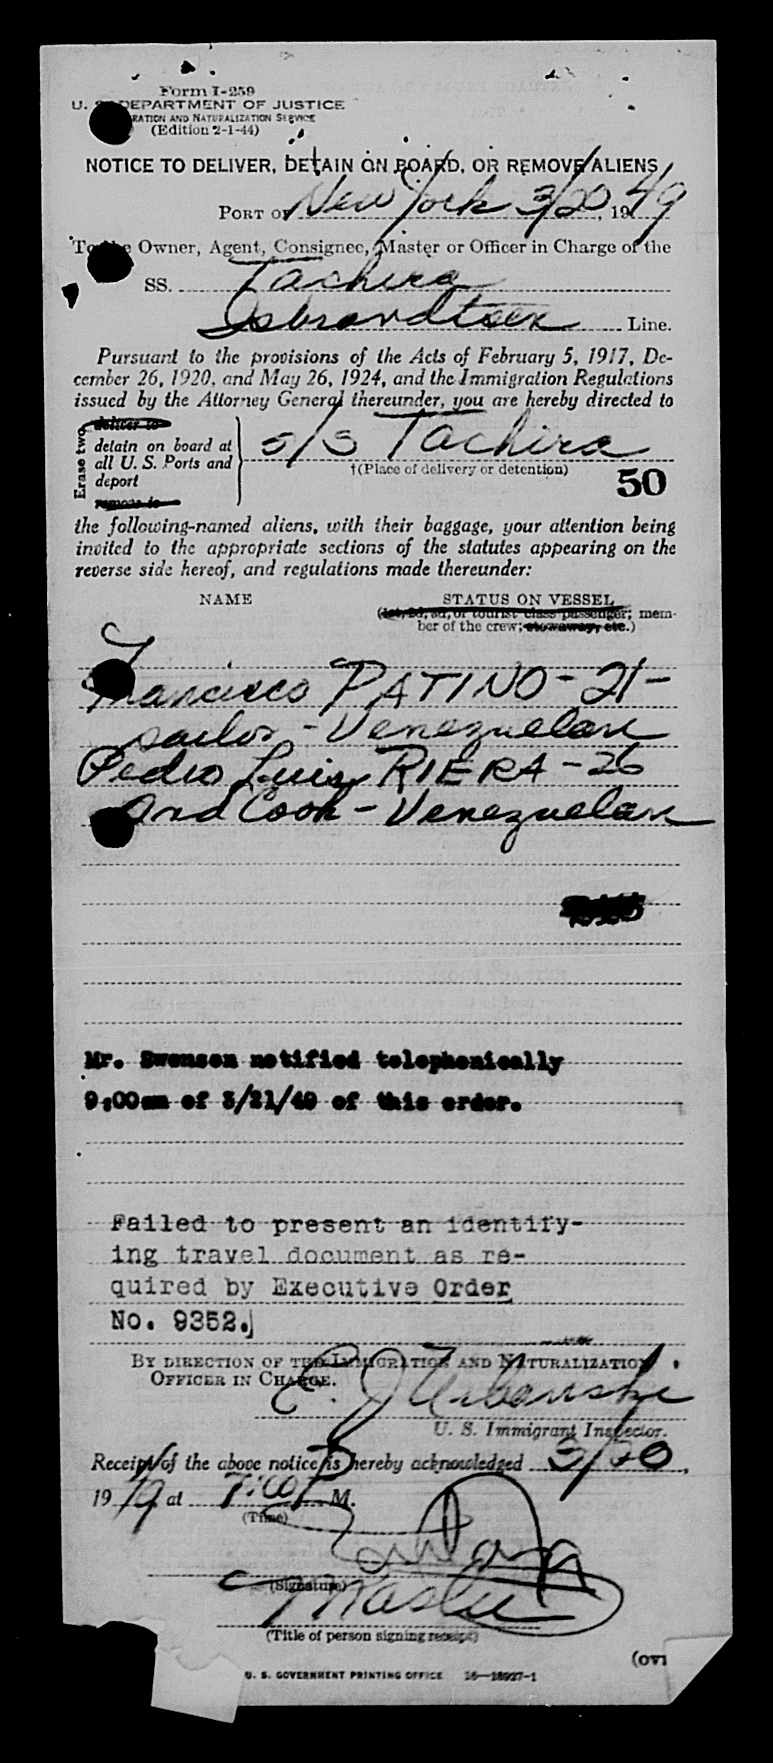 Form I-259
U. S. DEPARTMENT OF JUSTICE
IMMIGRATION AND NATURALIZATION SERVICE
(Edition 2-1-44)
NOTICE TO DELIVER, DETAIN ON BOARD, OR REMOVE ALIENS
PORT OF New York 3/20, 1949
To the Owner, Agent, Consignee, Master or Officer in Charge of the
SS. Tachira
Isbrandtsen Line.
Pursuant to the provisions of the Acts of February 5, 1917, De-
cember 26, 1920, and May 26, 1924, and the Immigration Regulations
issued by the Attorney General thereunder, you are hereby directed to
Erase two
deliver to
detain on board at
all U. S. Ports and
deport
remove to
s/s Tachira
†(Place of delivery or detention)
50
the following-named aliens, with their baggage, your attention being
invited to the appropriate sections of the statutes appearing on the
reverse side hereof, and regulations made thereunder:
NAME STATUS ON VESSEL
(1st, 2d, 3d, or tourist class passenger; mem-
ber of the crew; stowaway, etc.)
Francisco PATINO - 21 -
sailor - Venezuelan
Pedro Luis RIERA - 26
2nd Cook - Venezuelan
Mr. Swenson notified telephonically
9:00am of 3/21/49 of this order.
Failed to present an identify-
ing travel document as re-
quired by Executive Order
No. 9352.
BY DIRECTION OF THE IMMIGRATION AND NATURALIZATION
OFFICER IN CHARGE.
E. J. Urbanski
U. S. Immigrant Inspector.
Receipt of the above notice is hereby acknowledged 3/20,
1949 at 7:00 P M.
(Time)
(Signature)
Master
(Title of person signing receipt)
(OVE
U. S. GOVERNMENT PRINTING OFFICE 16—18927-1